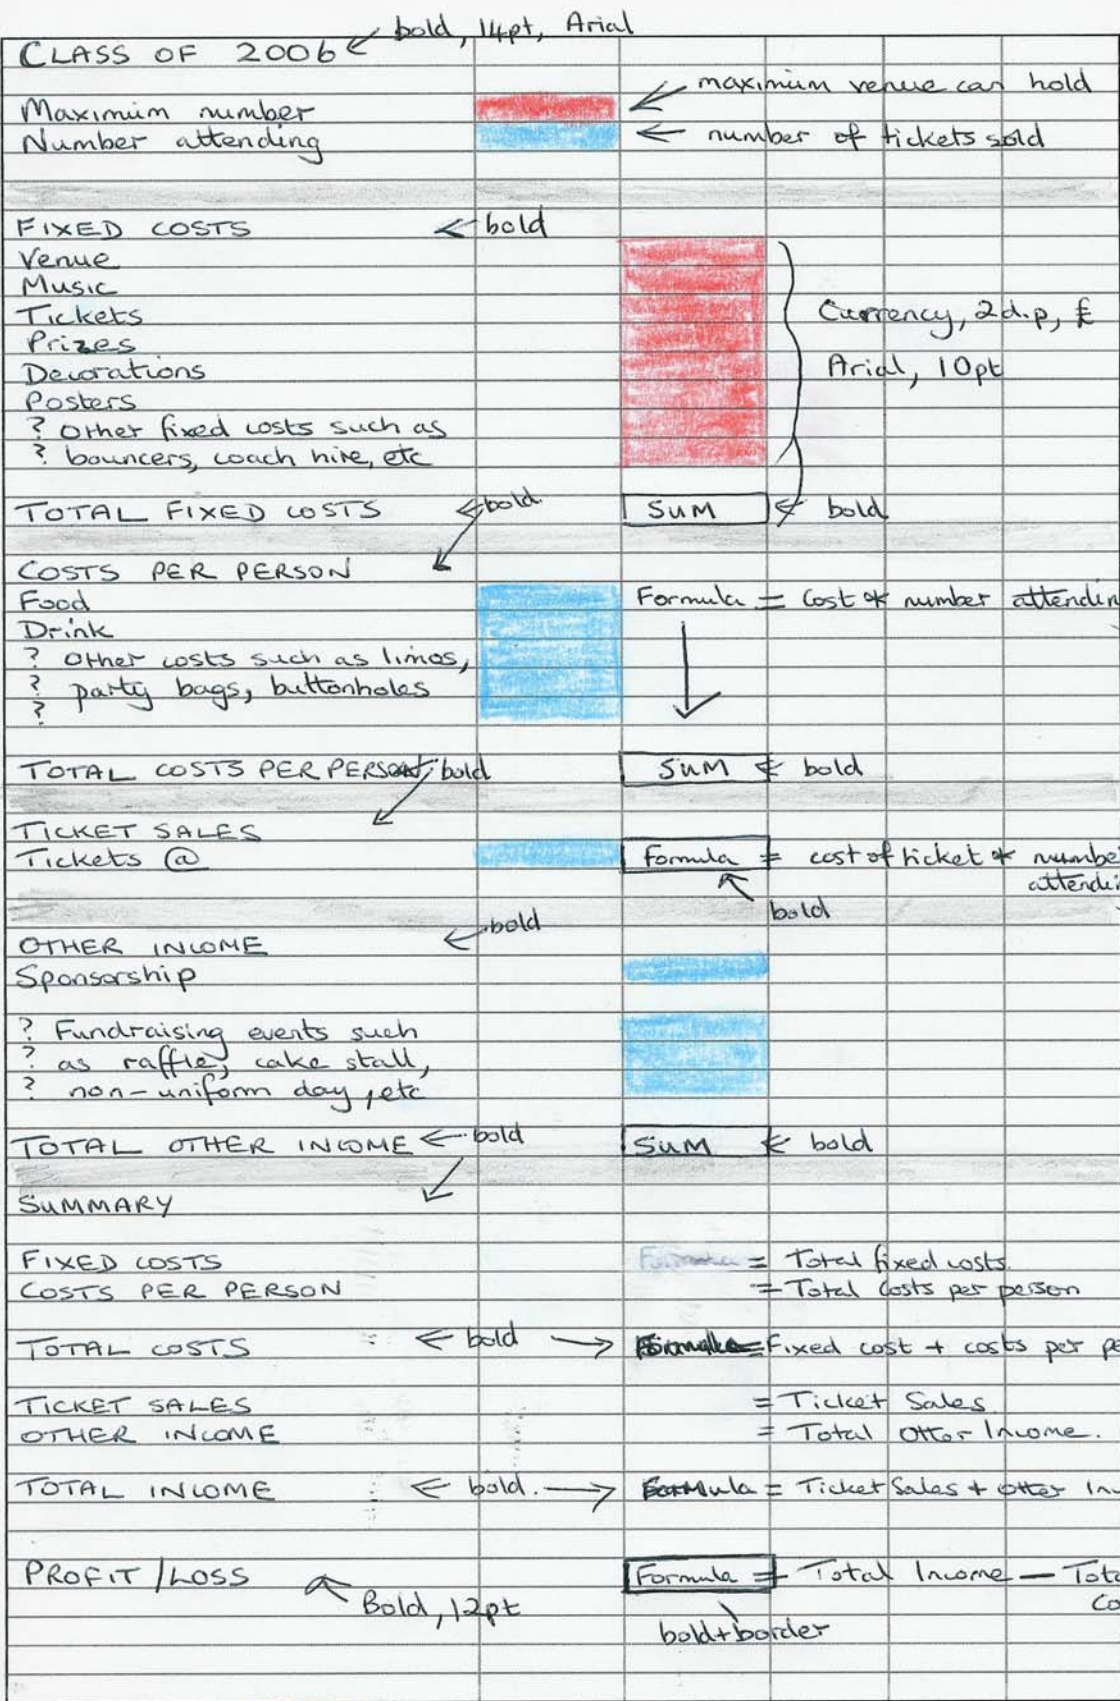 bold, 14pt, Arial
CLASS OF 2006
maximum venue can hold
Maximum number
Number attending number of tickets sold
FIXED COSTS bold
Venue
Music
Tickets Currency, 2d.p, £
Prizes
Decorations Arial, 10pt
Posters
? Other fixed costs such as
? bouncers, coach hire, etc
TOTAL FIXED COSTS bold SUM bold
COSTS PER PERSON
Food Formula = cost * number attendin
Drink
? Other costs such as limos,
? party bags, buttonholes
?
TOTAL COSTS PER PERSON bold SUM bold
TICKET SALES
Tickets @ Formula = cost of ticket * numbe
attendi
bold
bold
OTHER INCOME
Sponsorship
? Fundraising events such
? as raffle, cake stall,
? non-uniform day, etc
TOTAL OTHER INCOME bold SUM bold
SUMMARY
FIXED COSTS Formula = Total fixed costs.
COSTS PER PERSON = Total costs per person
TOTAL COSTS bold Formula = Fixed cost + costs per pe
TICKET SALES = Ticket Sales.
OTHER INCOME = Total Other Income.
TOTAL INCOME bold. Formula = Ticket Sales + other Inc
PROFIT/LOSS Formula = Total Income - Tota
Co
Bold, 12pt
bold + border